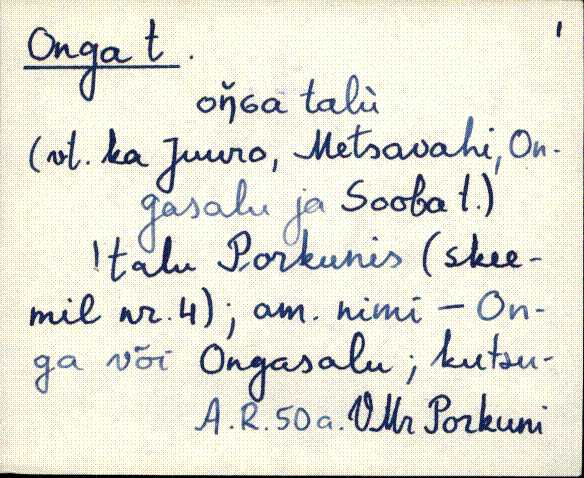 Onga t.
1
oŋ̆ɢa talù
(vt. ka Juuro, Metsavahi, On-
gasalu ja Sooba t.)
! talu Porkunis (skee-
mil nr. 4); am. nimi - On-
ga või Ongasalu; kutsu-
A.R. 50 a. VMr Porkuni